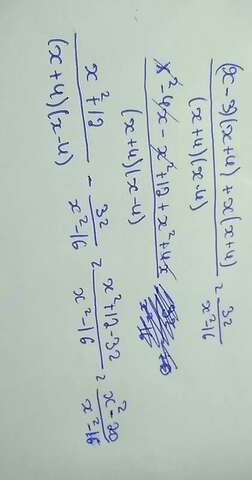 (x - 3)(x+4) + x(x+4) / (x+4)(x-4) = 32 / x²-16
x²-4x - x²+12 + x²+4x / (x+4)(x-4)
x²+12 / (x+4)(x-4) - 32 / x²-16 = x²+12-32 / x²-16 = x²-20 / x²-16